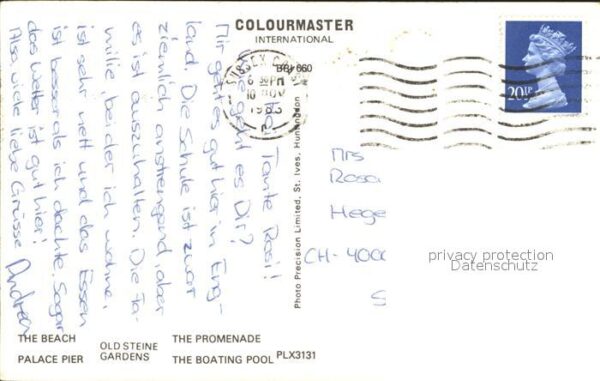 COLOURMASTER
INTERNATIONAL
SUSSEX COAST
6 30 PM
10 NOV
1983
20½P
Liebi Tante Rosi!
Wie geht es Dir?
Mir geht es gut hier in Eng-
land. Die Schule ist zwar
ziemlich anstrengend, aber
es ist auszuhalten. Die Fa-
milie, bei der ich wohne,
ist sehr nett und das Essen
ist besser als ich dachte. Sogar
das Wetter ist gut hier!
Also, viele liebe Grüsse Andrea
Photo Precision Limited, St. Ives, Huntingdon
Mrs
Rosa
Hege
CH-4000
S
privacy protection
Datenschutz
THE BEACH
PALACE PIER
OLD STEINE
GARDENS
THE PROMENADE
THE BOATING POOL
PLX3131